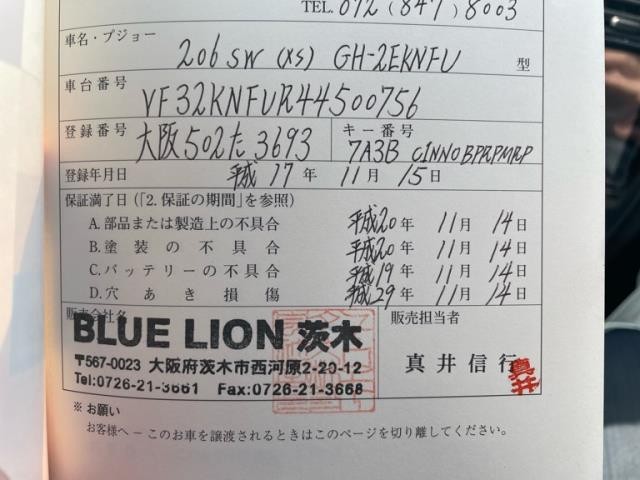 TEL. 072 (847) 8003
車名・プジョー 206 SW (XS) GH-2EKNFU 型
車台番号 VF32KNFUR44500756
登録番号 大阪502た3693 キー番号 7A3B C1NN0BPRPMRP
登録年月日 平成 17 年 11 月 15 日
保証満了日(「2. 保証の期間」を参照)
A. 部品または製造上の不具合 平成20 年 11 月 14 日
B. 塗装の不具合 平成20 年 11 月 14 日
C. バッテリーの不具合 平成19 年 11 月 14 日
D. 穴あき損傷 平成29 年 11 月 14 日
販売会社名 販売担当者
BLUE LION 茨木
〒567-0023 大阪府茨木市西河原2-20-12
真井信行 真井
Tel:0726-21-3661 Fax:0726-21-3668
※ お願い
お客様へ－このお車を譲渡されるときはこのページを切り離してください。